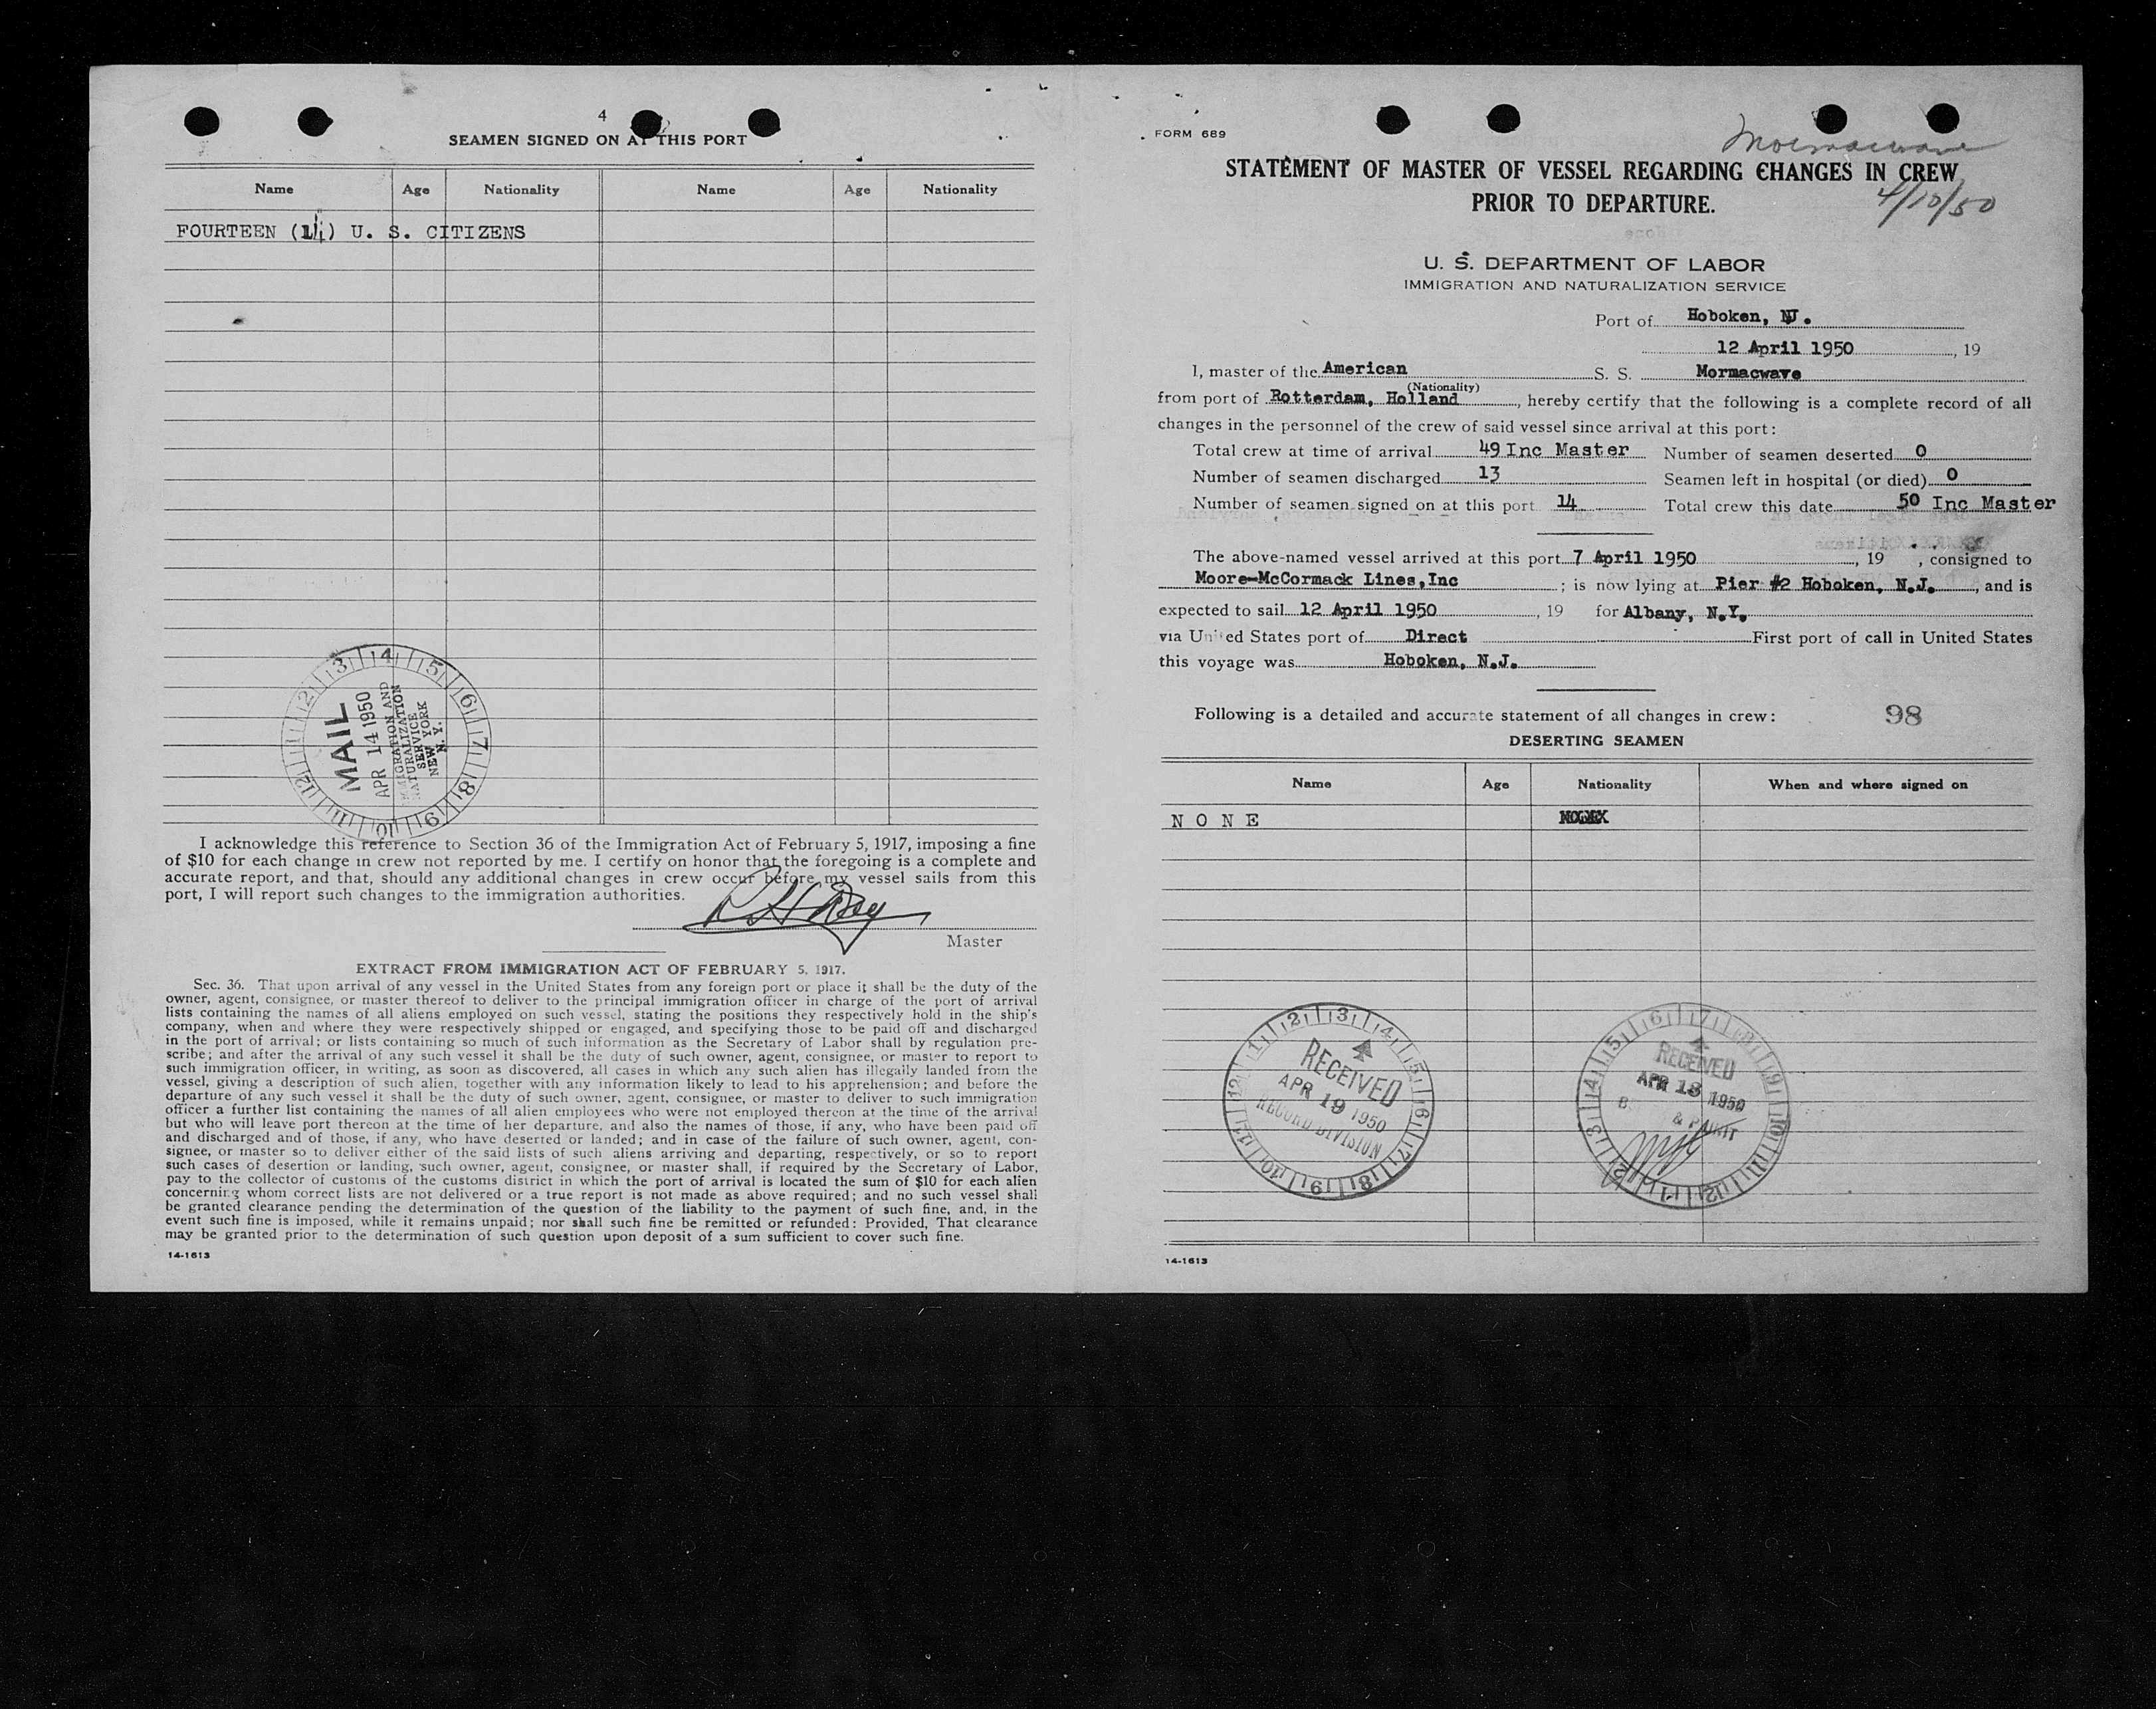 4
SEAMEN SIGNED ON AT THIS PORT
Name Age Nationality Name Age Nationality
FOURTEEN (14) U. S. CITIZENS
MAIL
APR 14 1950
IMMIGRATION AND
NATURALIZATION
SERVICE
NEW YORK
N. Y.
I acknowledge this reference to Section 36 of the Immigration Act of February 5, 1917, imposing a fine
of $10 for each change in crew not reported by me. I certify on honor that the foregoing is a complete and
accurate report, and that, should any additional changes in crew occur before my vessel sails from this
port, I will report such changes to the immigration authorities.
Master
EXTRACT FROM IMMIGRATION ACT OF FEBRUARY 5, 1917.
Sec. 36. That upon arrival of any vessel in the United States from any foreign port or place it shall be the duty of the
owner, agent, consignee, or master thereof to deliver to the principal immigration officer in charge of the port of arrival
lists containing the names of all aliens employed on such vessel, stating the positions they respectively hold in the ship's
company, when and where they were respectively shipped or engaged, and specifying those to be paid off and discharged
in the port of arrival; or lists containing so much of such information as the Secretary of Labor shall by regulation pre-
scribe; and after the arrival of any such vessel it shall be the duty of such owner, agent, consignee, or master to report to
such immigration officer, in writing, as soon as discovered, all cases in which any such alien has illegally landed from the
vessel, giving a description of such alien, together with any information likely to lead to his apprehension; and before the
departure of any such vessel it shall be the duty of such owner, agent, consignee, or master to deliver to such immigration
officer a further list containing the names of all alien employees who were not employed thereon at the time of the arrival
but who will leave port thereon at the time of her departure, and also the names of those, if any, who have been paid off
and discharged and of those, if any, who have deserted or landed; and in case of the failure of such owner, agent, con-
signee, or master so to deliver either of the said lists of such aliens arriving and departing, respectively, or so to report
such cases of desertion or landing, such owner, agent, consignee, or master shall, if required by the Secretary of Labor,
pay to the collector of customs of the customs district in which the port of arrival is located the sum of $10 for each alien
concerning whom correct lists are not delivered or a true report is not made as above required; and no such vessel shall
be granted clearance pending the determination of the question of the liability to the payment of such fine, and, in the
event such fine is imposed, while it remains unpaid; nor shall such fine be remitted or refunded: Provided, That clearance
may be granted prior to the determination of such question upon deposit of a sum sufficient to cover such fine.
14-1613
FORM 689
Mormacwave
STATEMENT OF MASTER OF VESSEL REGARDING CHANGES IN CREW
PRIOR TO DEPARTURE.
4/10/50
U. S. DEPARTMENT OF LABOR
IMMIGRATION AND NATURALIZATION SERVICE
Port of Hoboken, NJ.
12 April 1950, 19
I, master of the American S. S. Mormacwave
(Nationality)
from port of Rotterdam, Holland, hereby certify that the following is a complete record of all
changes in the personnel of the crew of said vessel since arrival at this port:
Total crew at time of arrival 49 Inc Master Number of seamen deserted 0
Number of seamen discharged 13 Seamen left in hospital (or died) 0
Number of seamen signed on at this port 14 Total crew this date 50 Inc Master
The above-named vessel arrived at this port 7 April 1950, 19 , consigned to
Moore-McCormack Lines,Inc ; is now lying at Pier #2 Hoboken, N.J., and is
expected to sail 12 April 1950, 19 for Albany, N.Y.
via United States port of Direct First port of call in United States
this voyage was Hoboken, N.J.
Following is a detailed and accurate statement of all changes in crew: 98
DESERTING SEAMEN
Name Age Nationality When and where signed on
N O N E
RECEIVED
APR 19 1950
RECORD DIVISION
RECEIVED
APR 18 1950
14-1613